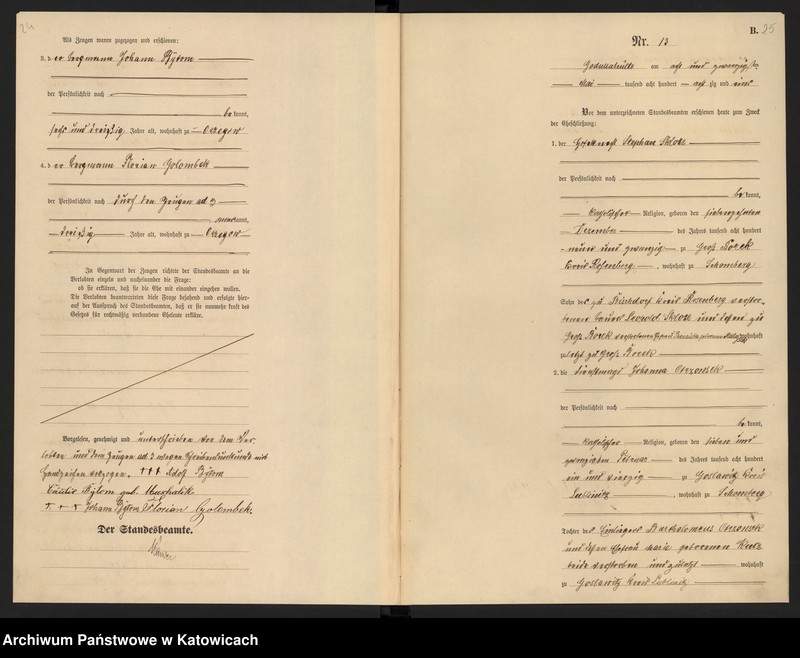 24
Als Zeugen waren zugezogen und erschienen:
3. der Bergmann Johann Bytom
der Persönlichkeit nach
bekannt,
sechs und dreißig Jahre alt, wohnhaft zu Orzegow
4. der Bergmann Florian Golombek
der Persönlichkeit nach durch den Zeugen ad 3
kannt,
dreißig Jahre alt, wohnhaft zu Orzegow
In Gegenwart der Zeugen richtete der Standesbeamte an die
Verlobten einzeln und nacheinander die Frage:
ob sie erklären, daß sie die Ehe mit einander eingehen wollen.
Die Verlobten beantworteten diese Frage bejahend und erfolgte hier-
auf der Ausspruch des Standesbeamten, daß er sie nunmehr kraft des
Gesetzes für rechtmäßig verbundene Eheleute erkläre.
Vorgelesen, genehmigt und unterschrieben von dem Ver-
lobten und dem Zeugen ad 3 wegen Schreibensunkunde mit
Handzeichen vollzogen. +++ Adolf Bytom
Bytom geb.
+++ Johann Bytom Florian Golombek.
Der Standesbeamte.
B. 25
Nr. 13
Godullahütte am acht und zwanzig ten
Mai tausend acht hundert achtzig und eins
Vor dem unterzeichneten Standesbeamten erschienen heute zum Zweck
der Eheschließung:
1. der Stephan
der Persönlichkeit nach
bekannt,
katholischer Religion, geboren den siebenzehnten
Dezember des Jahres tausend acht hundert
neun und zwanzig zu Groß Borek
Kreis Rosenberg, wohnhaft zu Schomberg
Sohn des zu Kreis Rosenberg verstor-
benen Bauer Leopold und dessen zu
Groß Borek verstorbenen Ehefrau wohnhaft
zuletzt zu Groß Borek
2. die Dienstmagd Johanna
der Persönlichkeit nach
bekannt,
katholischer Religion, geboren den sieben und
zwanzigsten Februar des Jahres tausend acht hundert
ein und vierzig zu Goslawitz Kreis
Lublinitz, wohnhaft zu Schomberg
Tochter des Einliegers Bartholomeus
und dessen Ehefrau Marie geborenen
beide verstorben und zuletzt wohnhaft
zu Goslawitz Kreis Lublinitz
Archiwum Państwowe w Katowicach